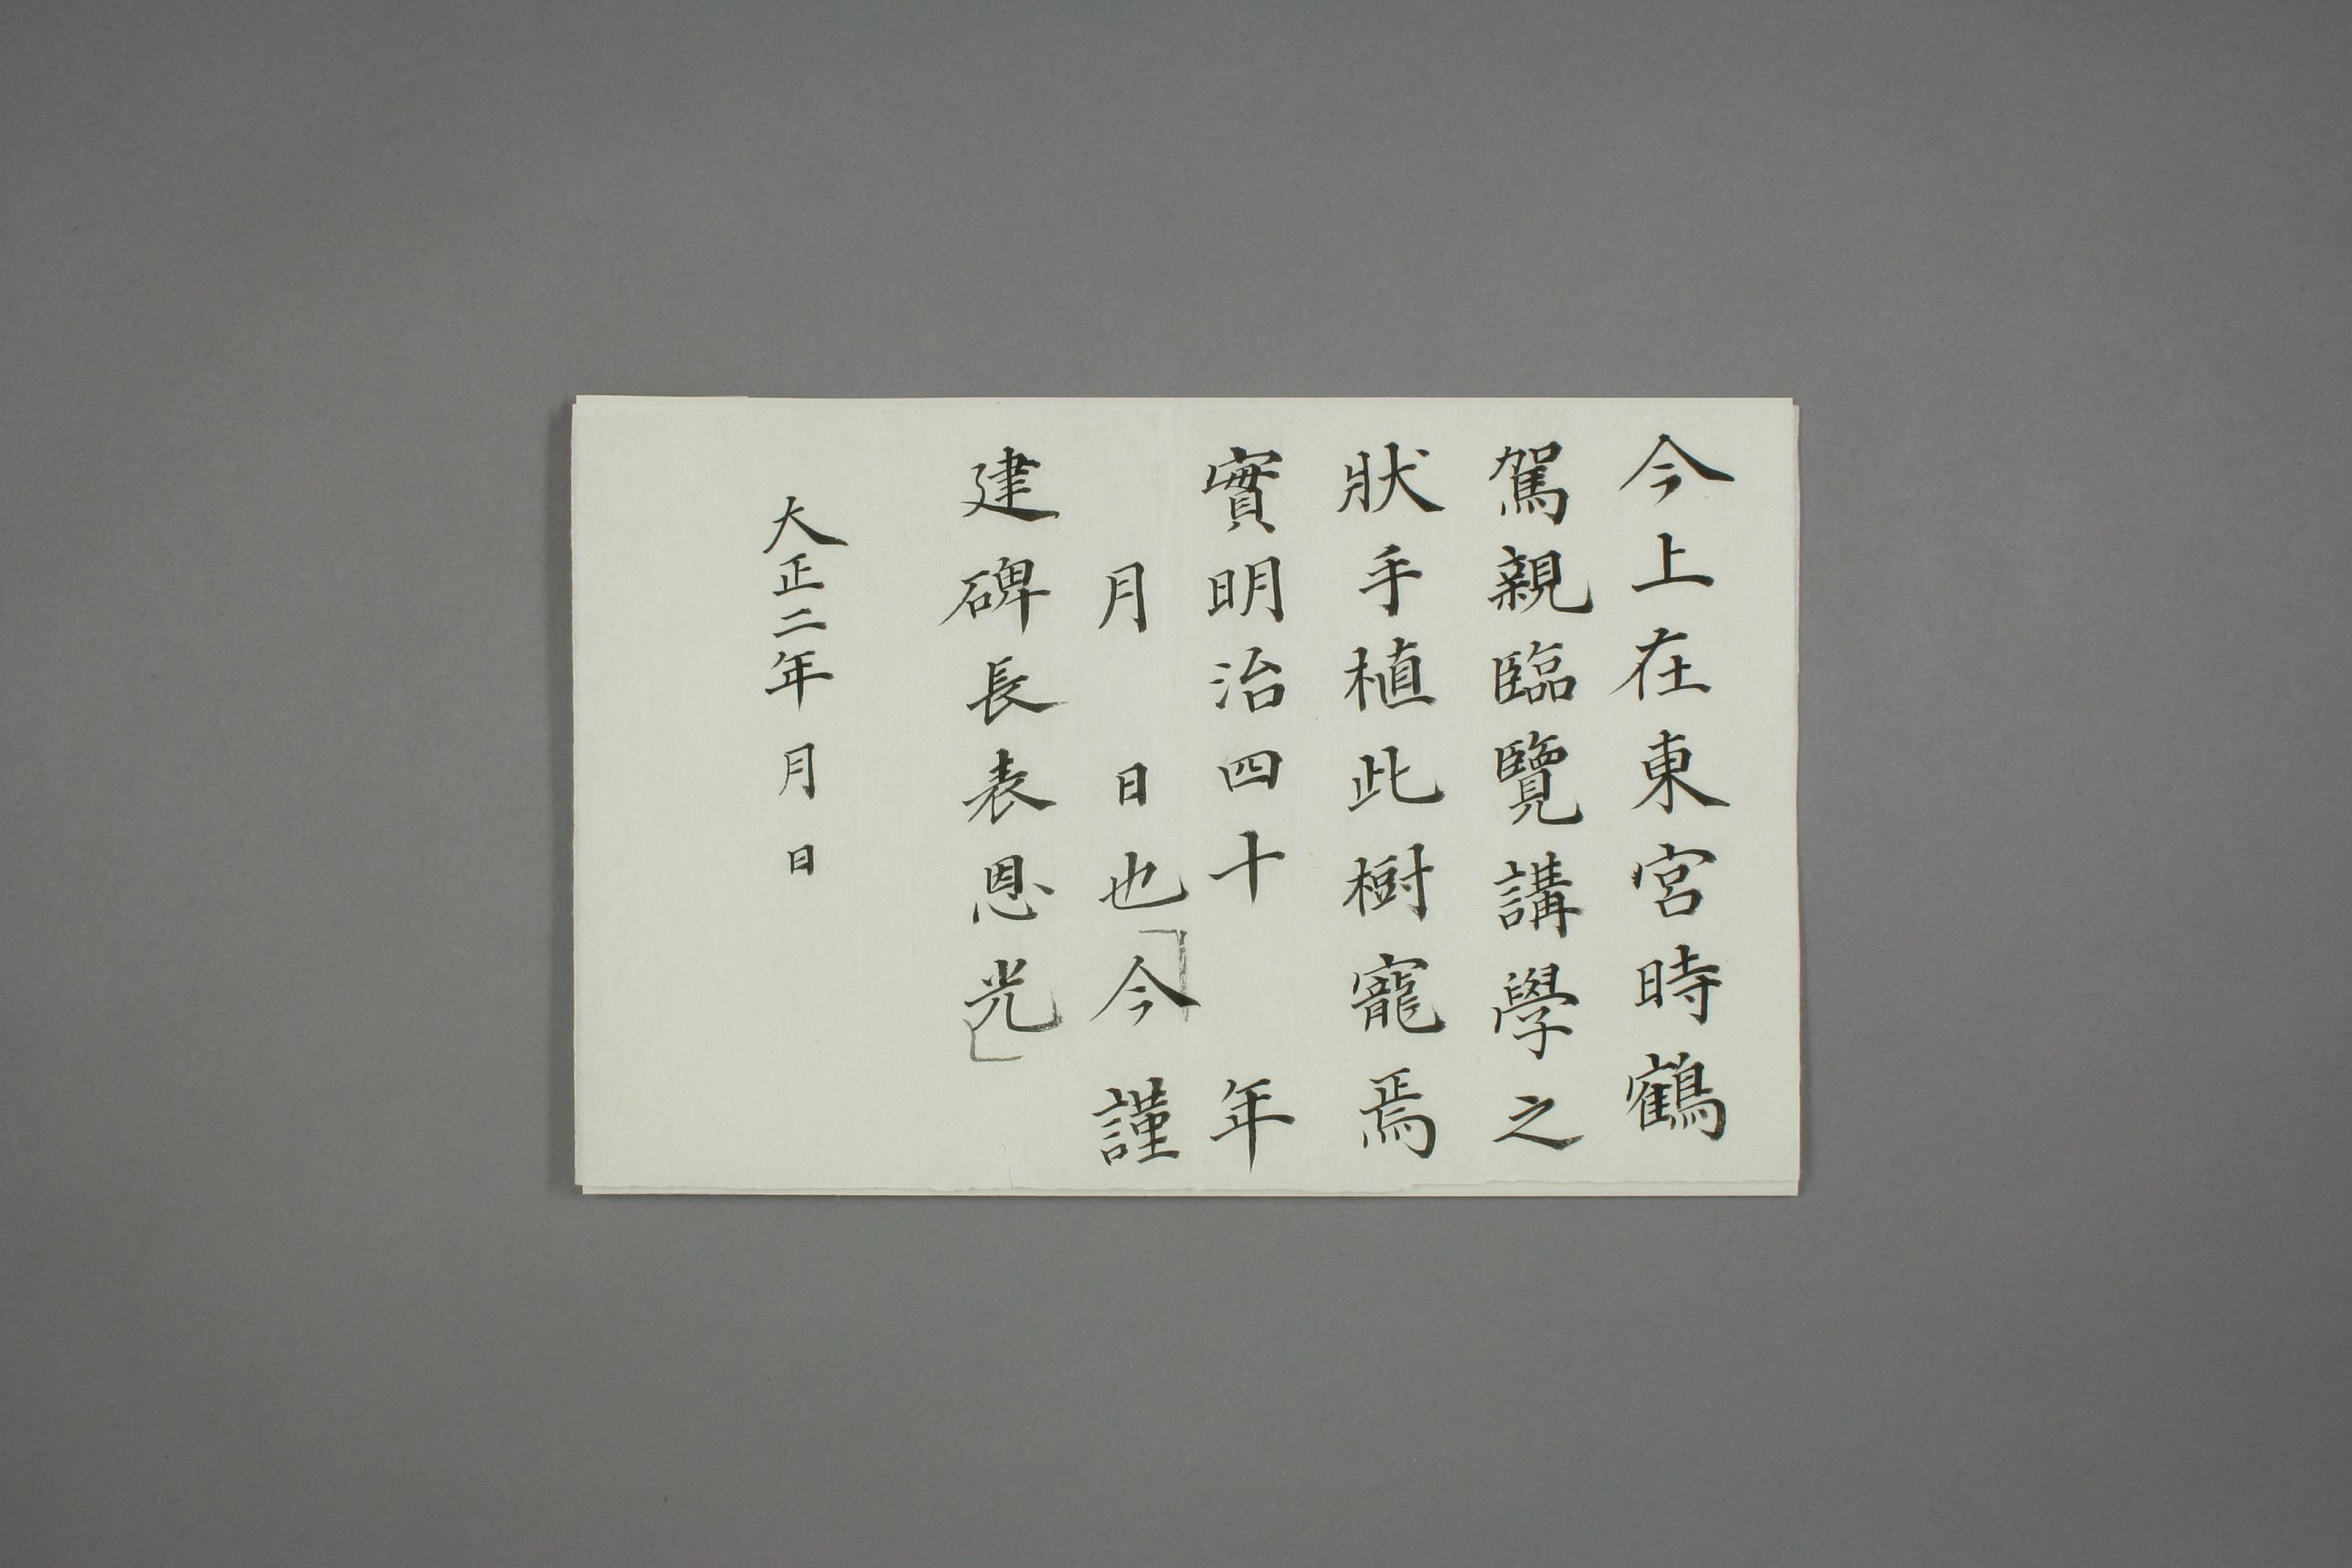 今上在東宮時鶴
駕親臨覽講學之
狀手植此樹寵焉
實明治四十　年
　月　日也「今謹
建碑長表恩光」
大正二年　月　日